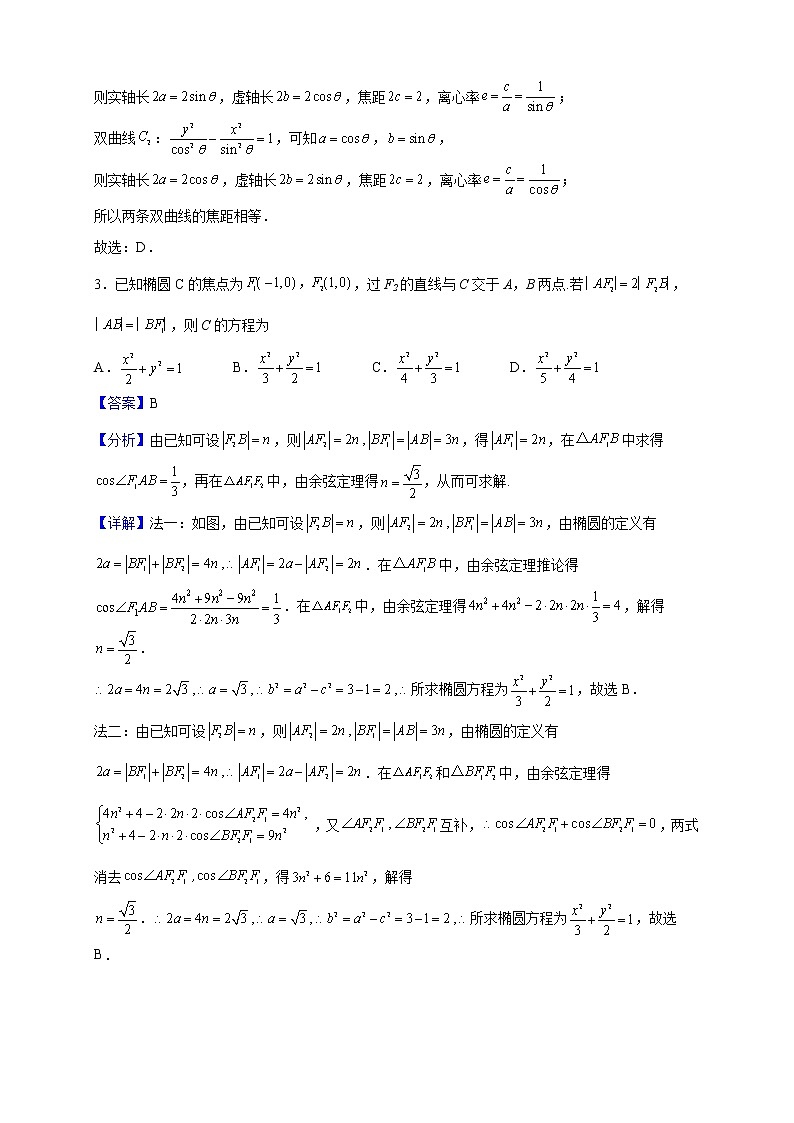 则实轴长2a = 2sinθ,虚轴长2b = 2cosθ,焦距2c = 2,离心率e = c/a = 1/sinθ;
双曲线C₂:y²/cos²θ − x²/sin²θ = 1,可知a = cosθ,b = sinθ,
则实轴长2a = 2cosθ,虚轴长2b = 2sinθ,焦距2c = 2,离心率e = c/a = 1/cosθ;
所以两条双曲线的焦距相等.
故选:D.
3.已知椭圆C的焦点为F₁(−1,0),F₂(1,0),过F₂的直线与C交于A,B两点.若|AF₂| = 2|F₂B|,
|AB| = |BF₁|,则C的方程为
A.x²/2 + y² = 1 B.x²/3 + y²/2 = 1 C.x²/4 + y²/3 = 1 D.x²/5 + y²/4 = 1
【答案】B
【分析】由已知可设|F₂B| = n,则|AF₂| = 2n,|BF₁| = |AB| = 3n,得|AF₁| = 2n,在△AF₁B中求得
cos∠F₁AB = 1/3,再在△AF₁F₂中,由余弦定理得n = √3/2,从而可求解.
【详解】法一:如图,由已知可设|F₂B| = n,则|AF₂| = 2n,|BF₁| = |AB| = 3n,由椭圆的定义有
2a = |BF₁| + |BF₂| = 4n,∴|AF₁| = 2a − |AF₂| = 2n.在△AF₁B中,由余弦定理推论得
cos∠F₁AB = (4n² + 9n² − 9n²)/(2·2n·3n) = 1/3.在△AF₁F₂中,由余弦定理得4n² + 4n² − 2·2n·2n·1/3 = 4,解得
n = √3/2.
∴2a = 4n = 2√3,∴a = √3,∴b² = a² − c² = 3 − 1 = 2,∴所求椭圆方程为x²/3 + y²/2 = 1,故选B.
法二:由已知可设|F₂B| = n,则|AF₂| = 2n,|BF₁| = |AB| = 3n,由椭圆的定义有
2a = |BF₁| + |BF₂| = 4n,∴|AF₁| = 2a − |AF₂| = 2n.在△AF₁F₂和△BF₁F₂中,由余弦定理得
{4n² + 4 − 2·2n·2·cos∠AF₂F₁ = 4n²,
n² + 4 − 2·n·2·cos∠BF₂F₁ = 9n²,又∠AF₂F₁,∠BF₂F₁互补,∴cos∠AF₂F₁ + cos∠BF₂F₁ = 0,两式
消去cos∠AF₂F₁,cos∠BF₂F₁,得3n² + 6 = 11n²,解得
n = √3/2.∴2a = 4n = 2√3,∴a = √3,∴b² = a² − c² = 3 − 1 = 2,∴所求椭圆方程为x²/3 + y²/2 = 1,故选
B.